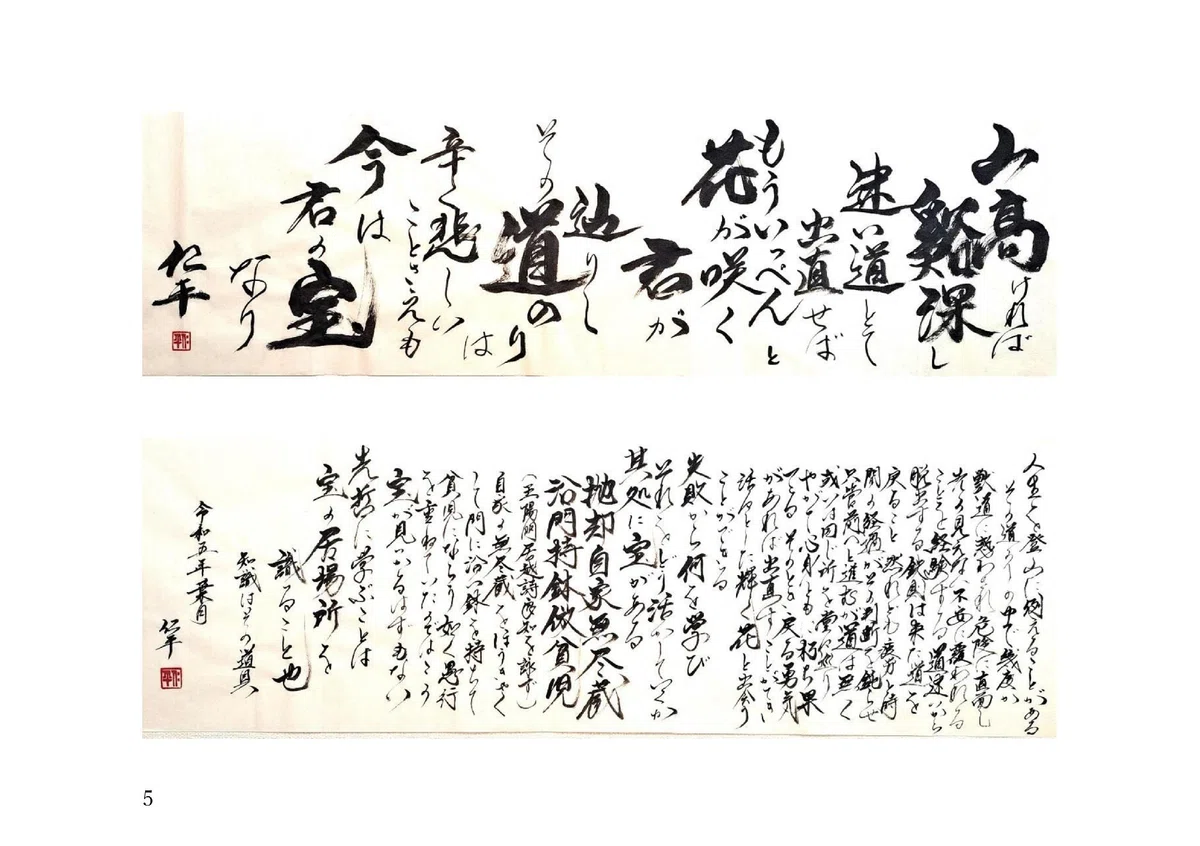 山高ければ
谿深し
迷い道とて
出直せば
もういっぺんと
花が咲く
君が
辿りし
その道のり
は
辛く悲しい
ことさえも
今は
君の宝
なり
仁平
人生を登山に例えることがある
その道のりの中で幾度か
獣道に惑わされ危険に直面し
先の見えない不安に覆われる
ことを経験する 道迷いから
脱出する鉄則は来た道を
戻ること 然れども疲労と時
間の経過がその判断を鈍らせ
只管前へと進むが道は無く
或いは同じ所を堂々巡り
やがて心身ともに朽ち果
てる そのとき 戻る勇気
があれば出直すことができ
活き活きとした輝く花と出会う
ことができる
失敗から何を学び
それをどう活かしていくか
其処に宝がある
抛却自家無尽蔵
沿門持鉢倣貧児
自家の無尽蔵をほうきゃく
して門に沿い鉢を持ちて
貧児にならう如く愚行
を重ねていたのではとう
宝が見つかるはずもない
先哲に学ぶことは
宝の居場所を
識ること也
知識はその道具
令和五年葉月
仁平
5